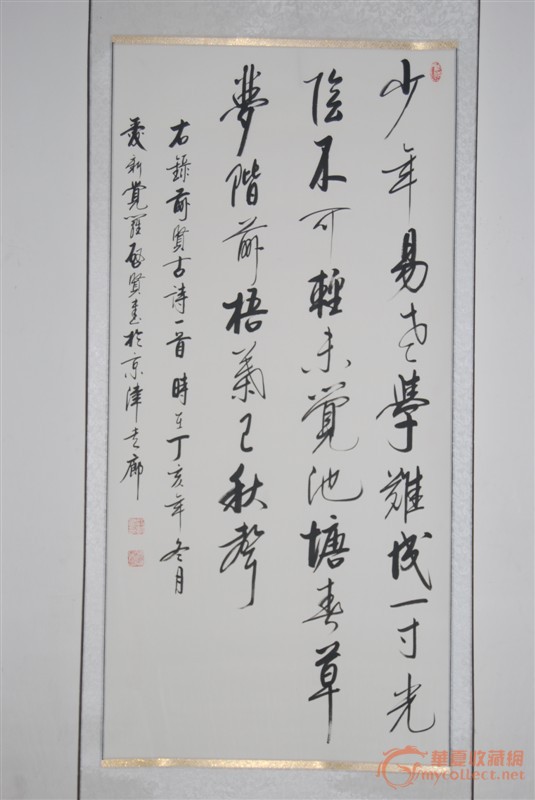 少年易老學難成一寸光
陰不可輕未覺池塘春草
夢階前梧葉已秋聲
右錄前賢古詩一首時在丁亥年冬月
愛新覺羅啟賢書於京津走廊
華夏收藏網
mycollect.net